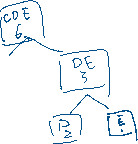 CDE
6
DE
3
D
2
E
1